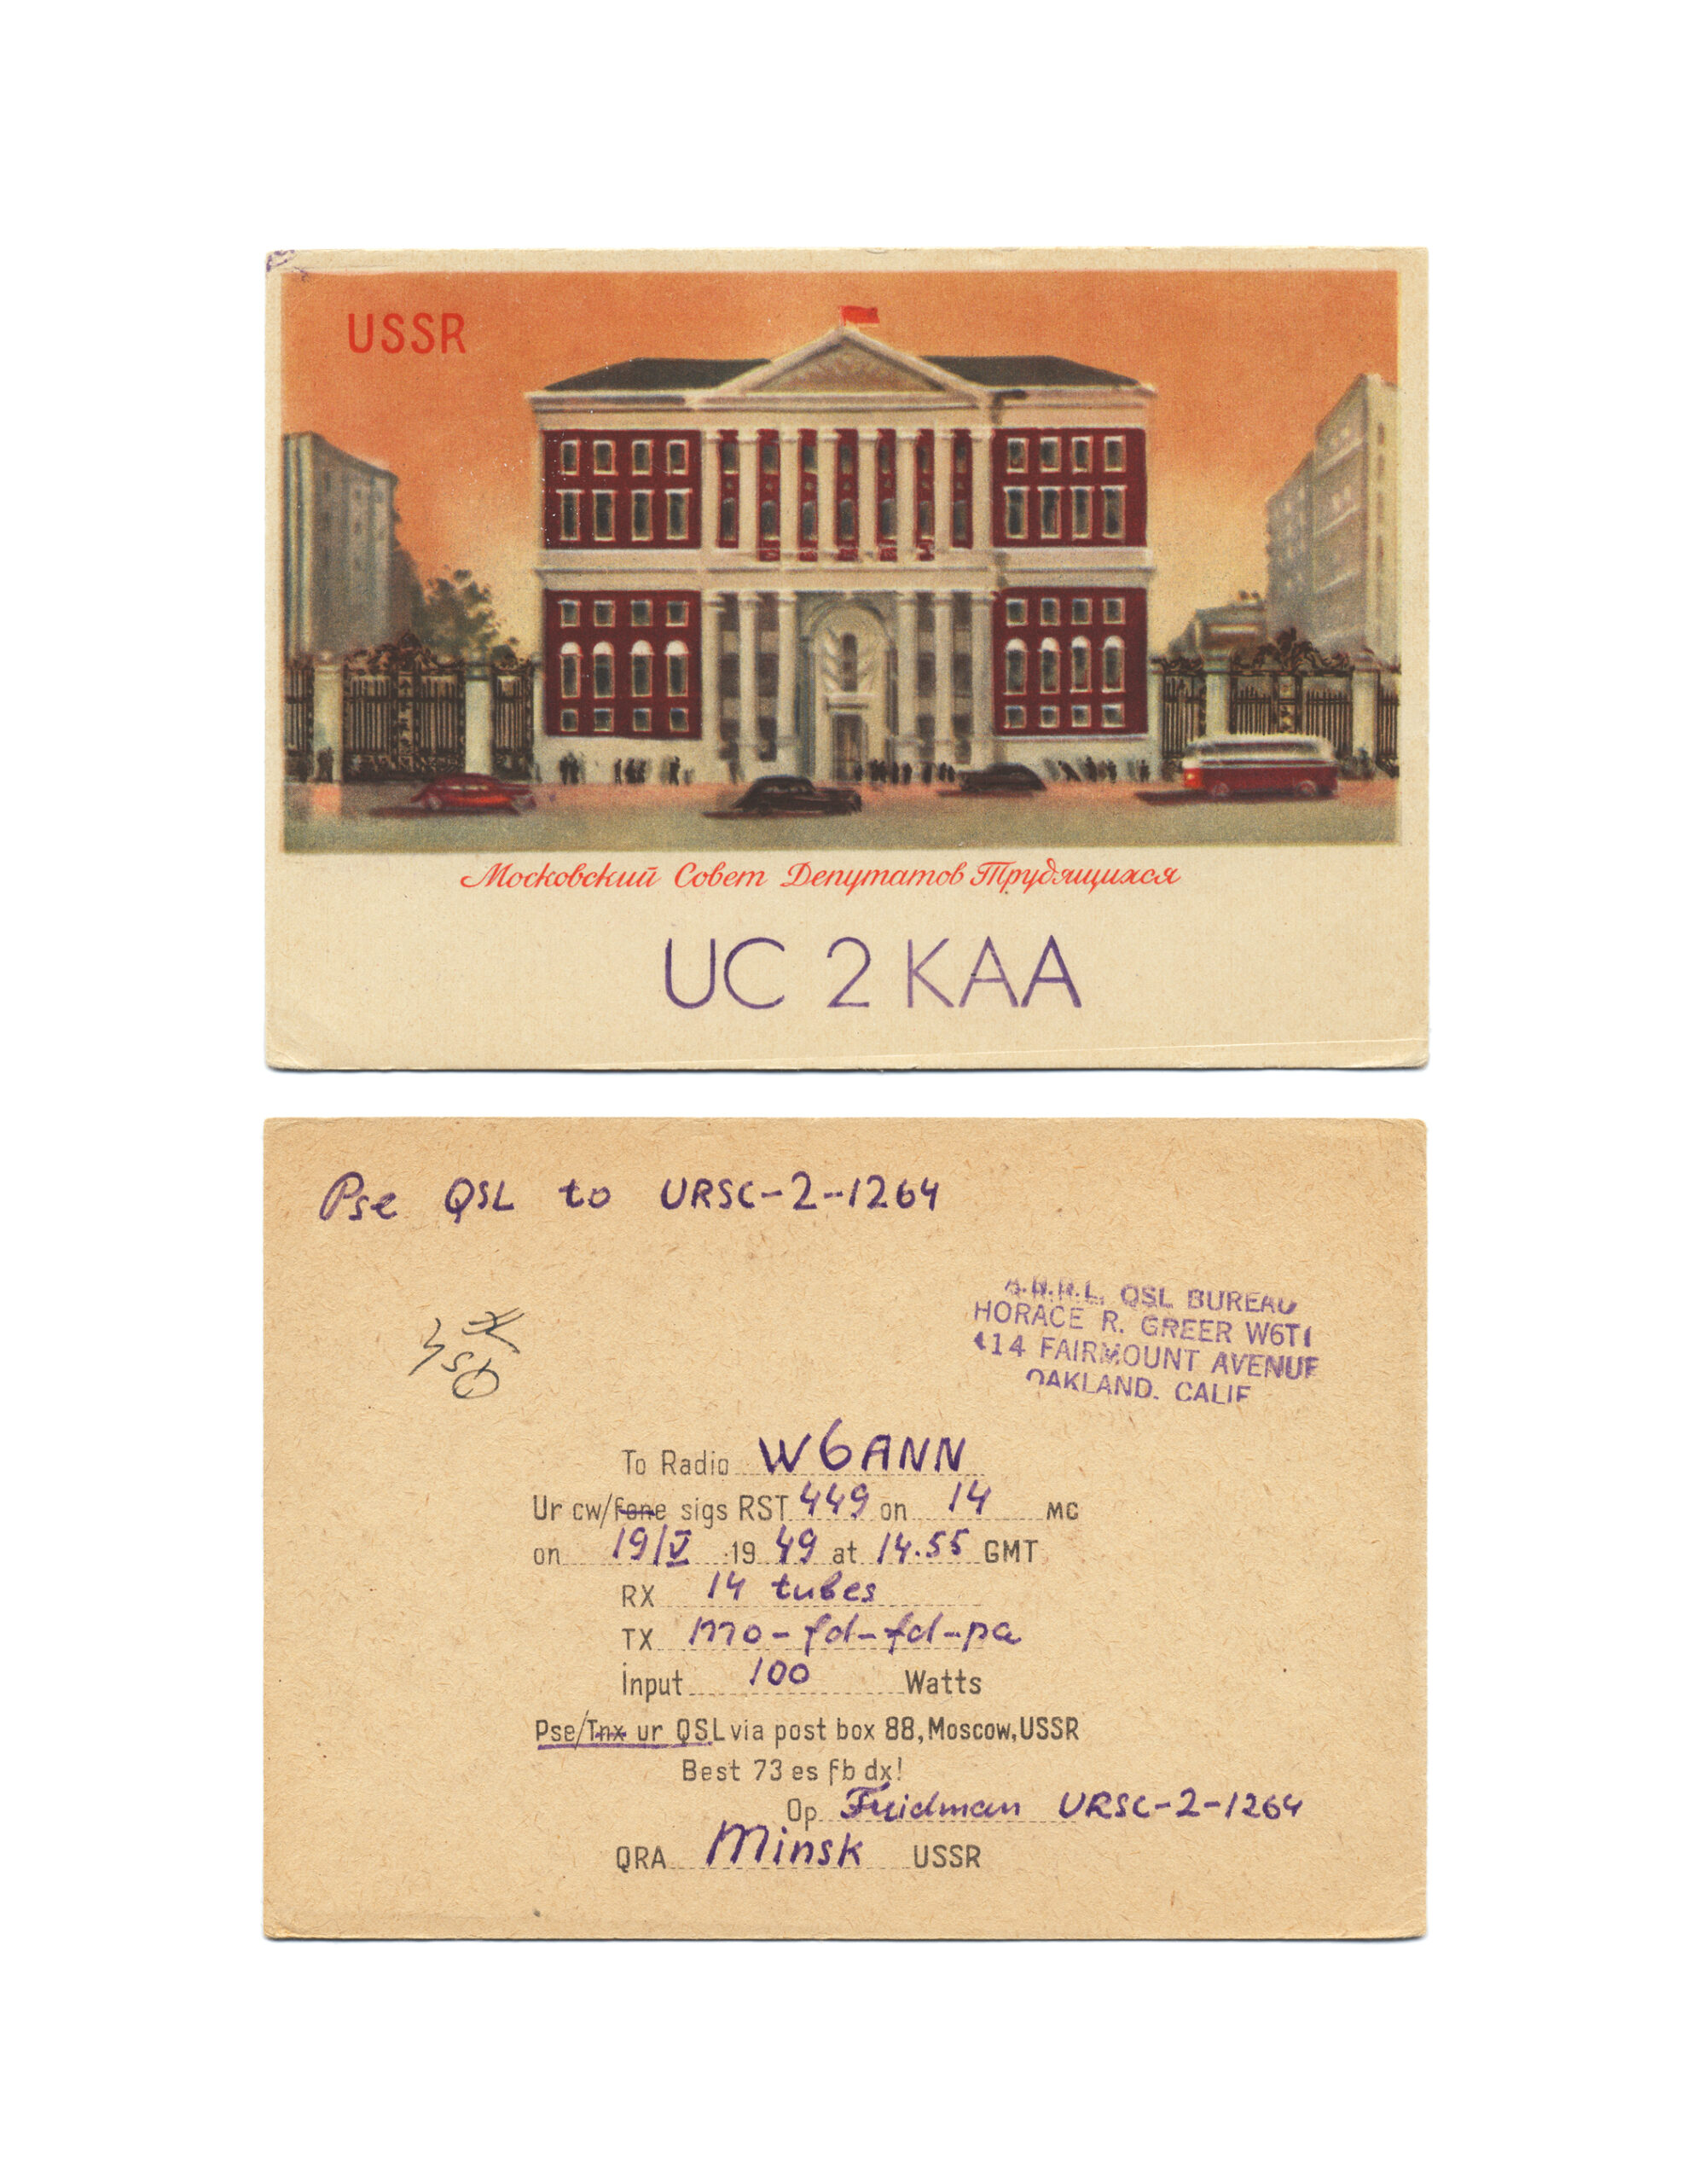 USSR
Московский Совет Депутатов Трудящихся
UC 2 KAA
Pse QSL to URSC-2-1264
A.R.R.L. QSL BUREAU
HORACE R. GREER W6TI
414 FAIRMOUNT AVENUE
OAKLAND. CALIF
QSL
To Radio W6ANN
Ur cw/fone sigs RST 449 on 14 MC
on 19/V 1949 at 14.55 GMT
RX 14 tubes
TX mo-fd-fd-pa
Input 100 Watts
Pse/Tnx ur QSL via post box 88, Moscow, USSR
Best 73 es fb dx!
Op Fridman URSC-2-1264
QRA Minsk USSR